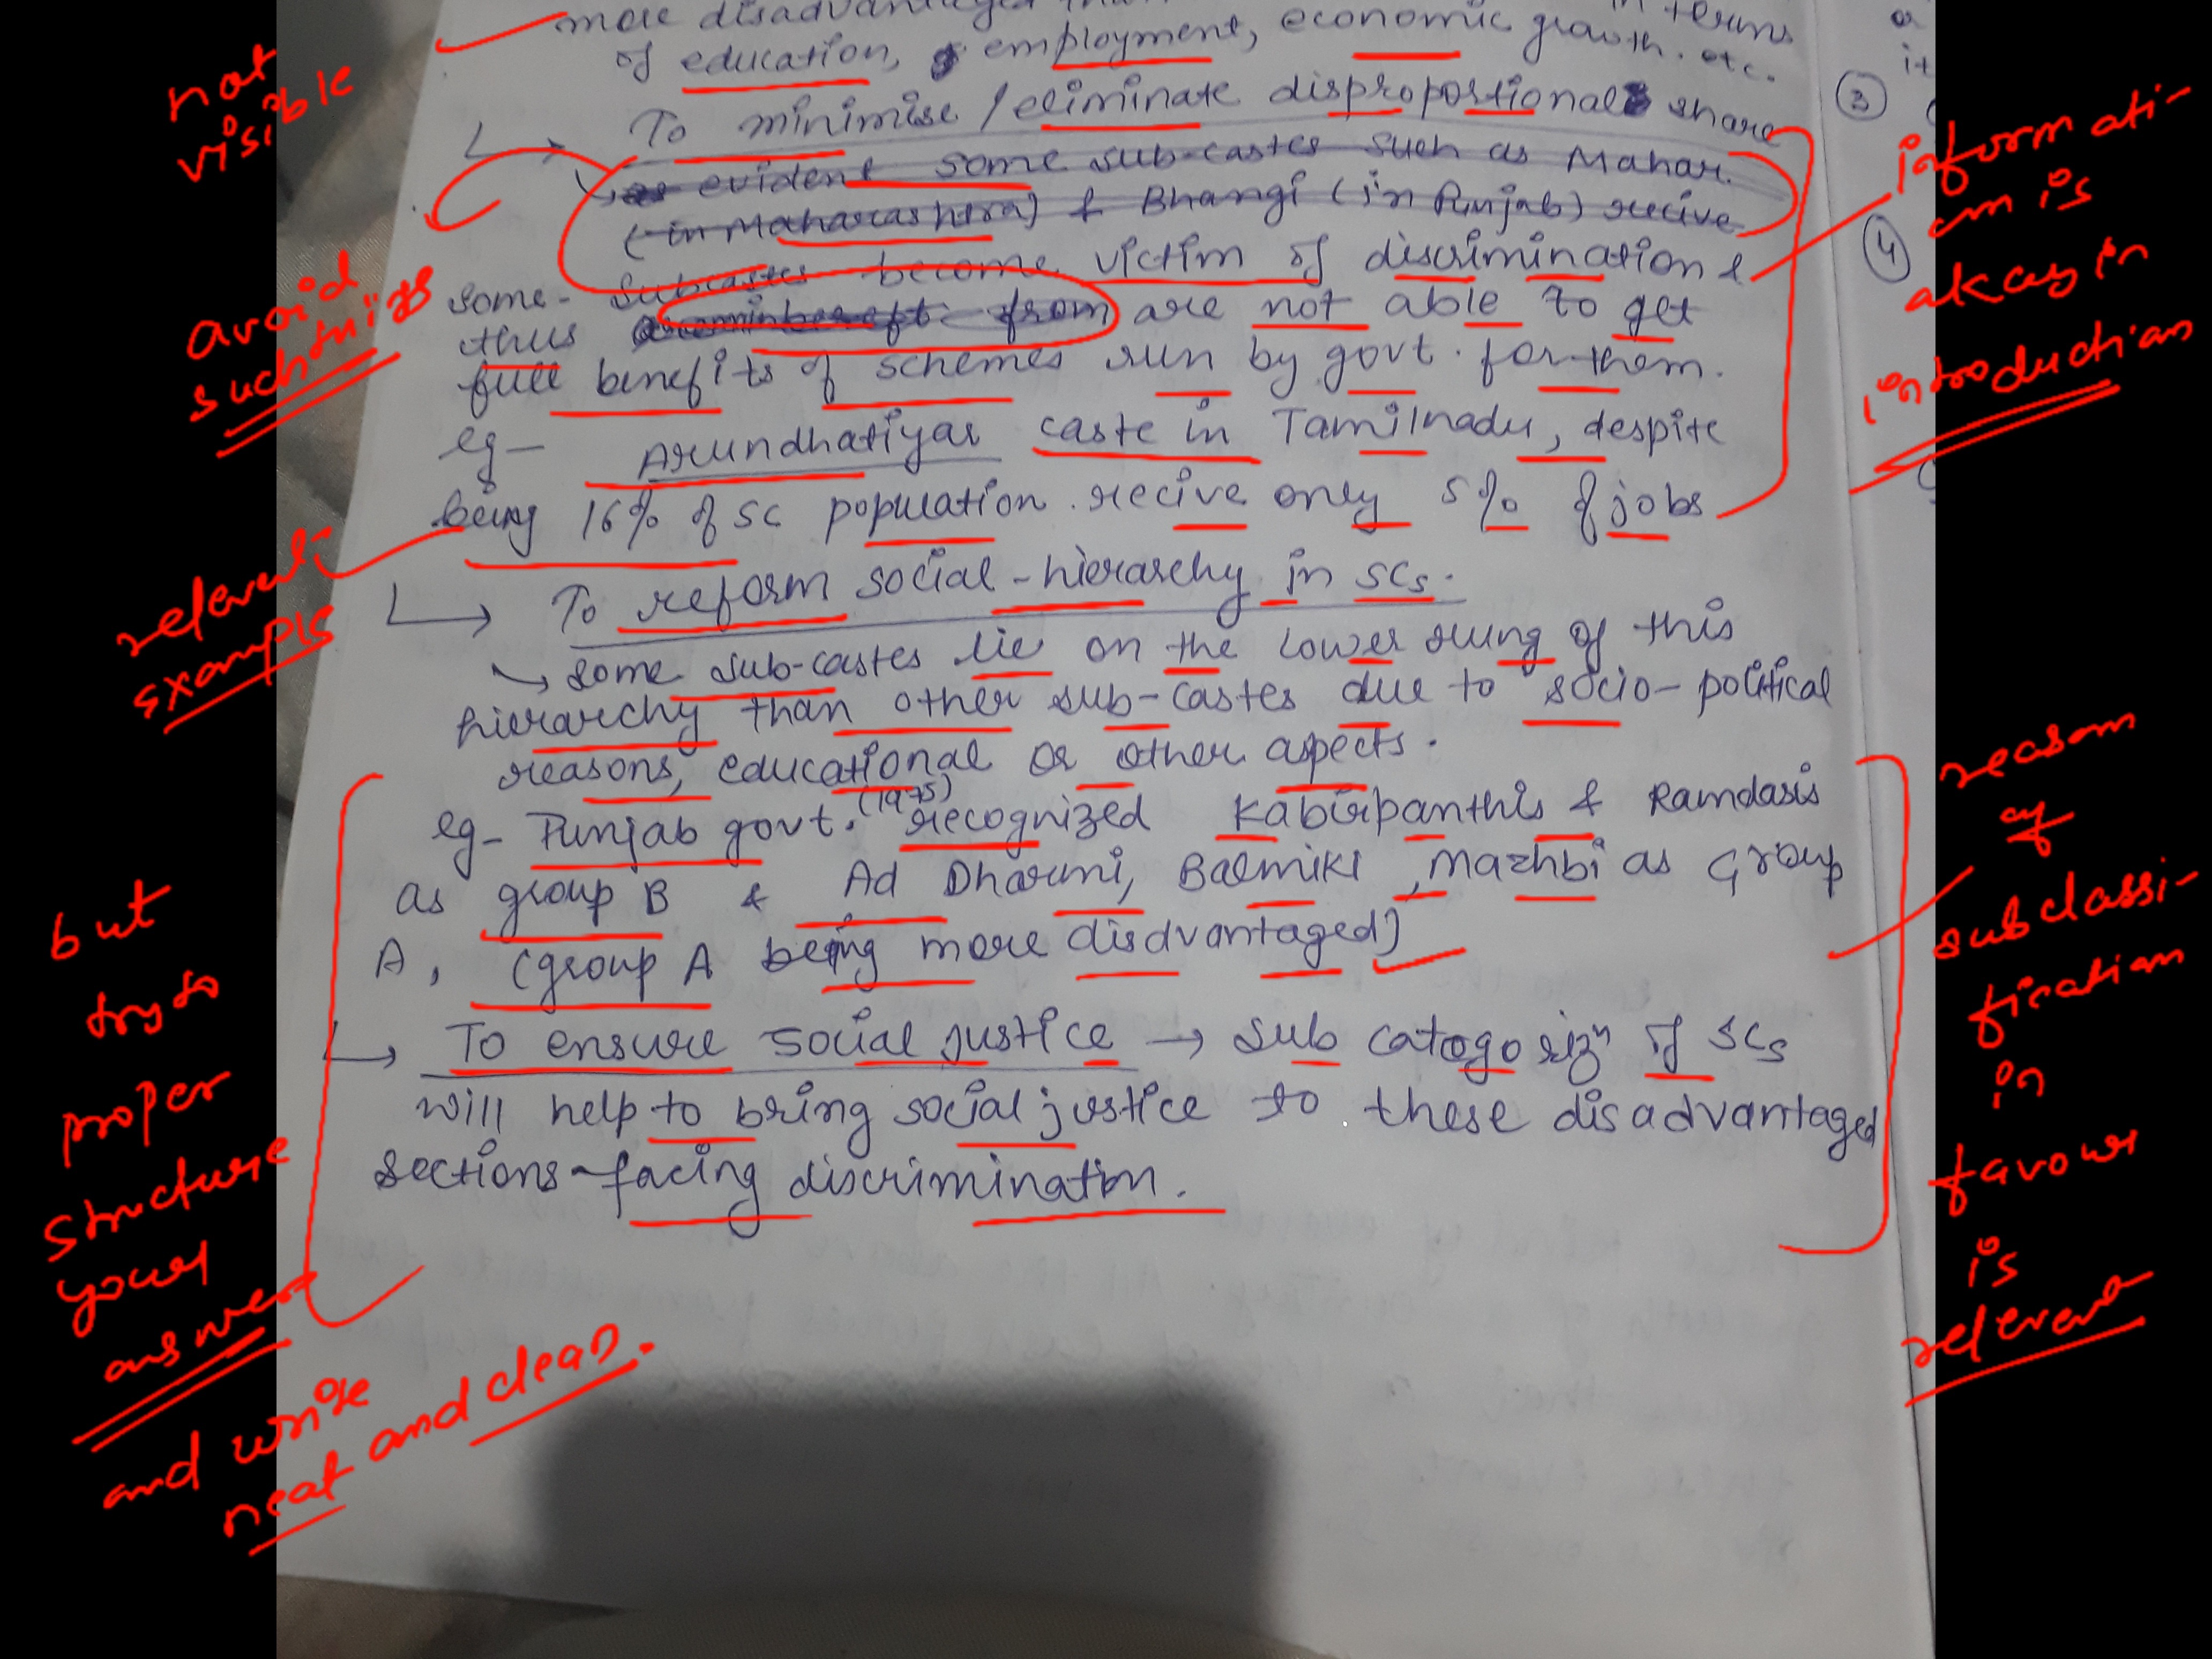 more disadvantaged in terms
of education, employment, economic growth. etc.
To minimise / eliminate disproportional share
as evident some sub-castes such as Mahar.
(in Maharashtra) & Bhangi (in Punjab) recive
some- subcastes become victim of discrimination &
thus from are not able to get
full benefits of schemes run by govt. for them.
eg- Arundhatiyar caste in Tamilnadu, despite
being 16% of SC population. recive only 5% of jobs
To reform social-hierarchy in SCs.
some sub-castes lie on the lower rung of this
hierarchy than other sub-castes due to socio-political
reasons, educational or other aspects.
eg- Punjab govt. (1975) recognized Kabirpanthis & Ramdasis
as group B & Ad Dharmi, Balmiki, Mazhbi as Group
A, (group A being more disdvantaged)
To ensure social justice → Sub catogorizn of SCs
will help to bring social justice to these disadvantaged
sections facing discrimination.
not
visible
avoid
such
relevent
example
but
try to
proper
structure
your
answer
and write
neat and clean.
informati-
on is
okay in
introduction
reason
of
subclassi-
fication
in
favour
is
relevent
3
4
it